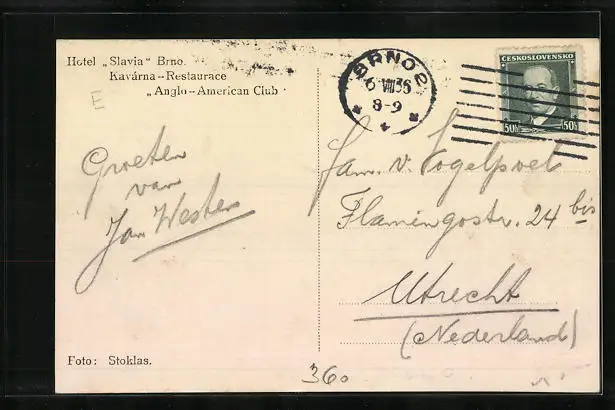 Hotel „Slavia“ Brno.
Kavárna-Restaurace
„Anglo-American Club
E
BRNO 2
6 VIII 36
8-9
ČESKOSLOVENSKO
50h 50h
Groeten
van
Jan Westen
Fam. v. Vogelpoel
Flamingostr. 24 bis
Utrecht
(Nederland)
Foto: Stoklas.
360